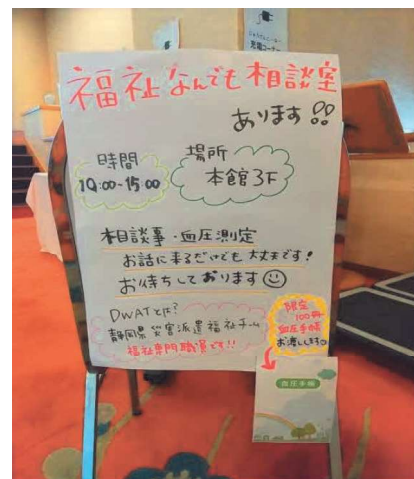 充電コーナー
福祉なんでも相談室
あります!!
時間
10:00~15:00
場所
本館3F
相談事・血圧測定
お話に来るだけでも大丈夫です!
お待ちしております
DWATとは?
静岡県災害派遣福祉チーム
福祉専門職員です!!
限定
100冊
血圧手帳
お渡しします
血圧手帳